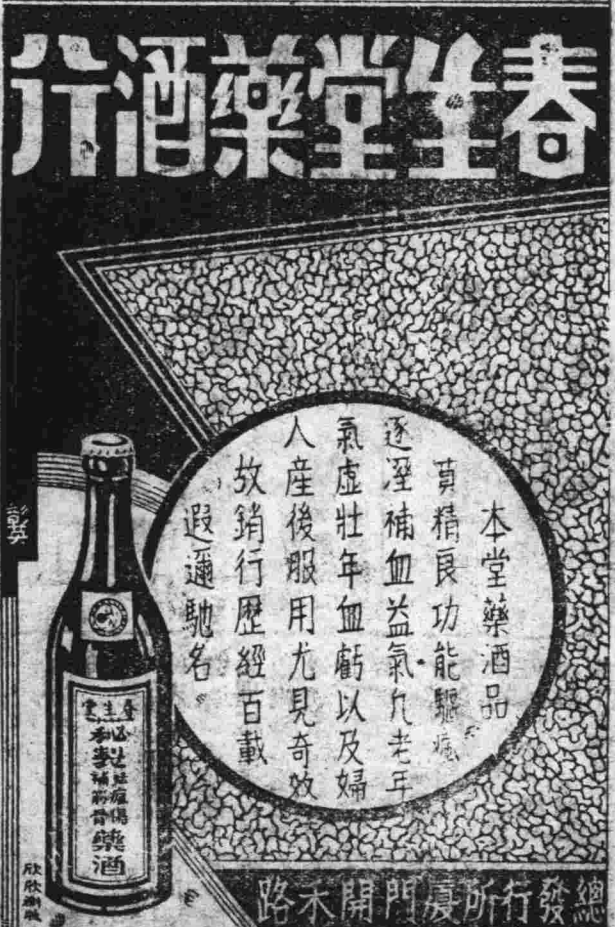 春生堂藥酒行
本堂藥酒品
質精良功能驅瘋
逐溼補血益氣凡老年
氣虛壯年血虧以及婦
人產後服用尤見奇效
故銷行歷經百載
遐邇馳名
春生堂
藥酒
總發行所廈門開禾路